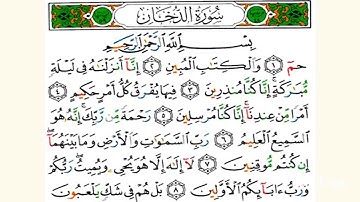 سُورَةُ الدُّخَانِ
بِسْمِ اللَّهِ الرَّحْمَٰنِ الرَّحِيمِ
حمٓ ١ وَالْكِتَابِ الْمُبِينِ ٢ إِنَّا أَنزَلْنَاهُ فِي لَيْلَةٍ
مُّبَارَكَةٍ إِنَّا كُنَّا مُنذِرِينَ ٣ فِيهَا يُفْرَقُ كُلُّ أَمْرٍ حَكِيمٍ ٤
أَمْرًا مِّنْ عِندِنَا إِنَّا كُنَّا مُرْسِلِينَ ٥ رَحْمَةً مِّن رَّبِّكَ إِنَّهُ هُوَ
السَّمِيعُ الْعَلِيمُ ٦ رَبِّ السَّمَاوَاتِ وَالْأَرْضِ وَمَا بَيْنَهُمَا
إِن كُنتُم مُّوقِنِينَ ٧ لَا إِلَٰهَ إِلَّا هُوَ يُحْيِي وَيُمِيتُ رَبُّكُمْ
وَرَبُّ آبَائِكُمُ الْأَوَّلِينَ ٨ بَلْ هُمْ فِي شَكٍّ يَلْعَبُونَ